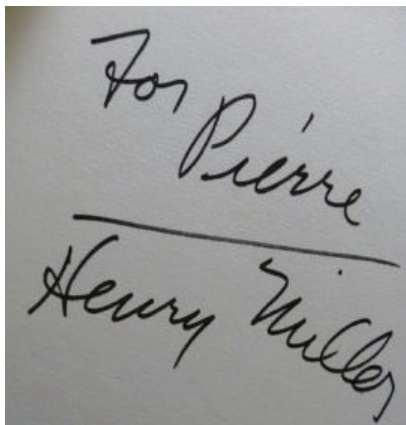 For
Piérre
Henry Miller